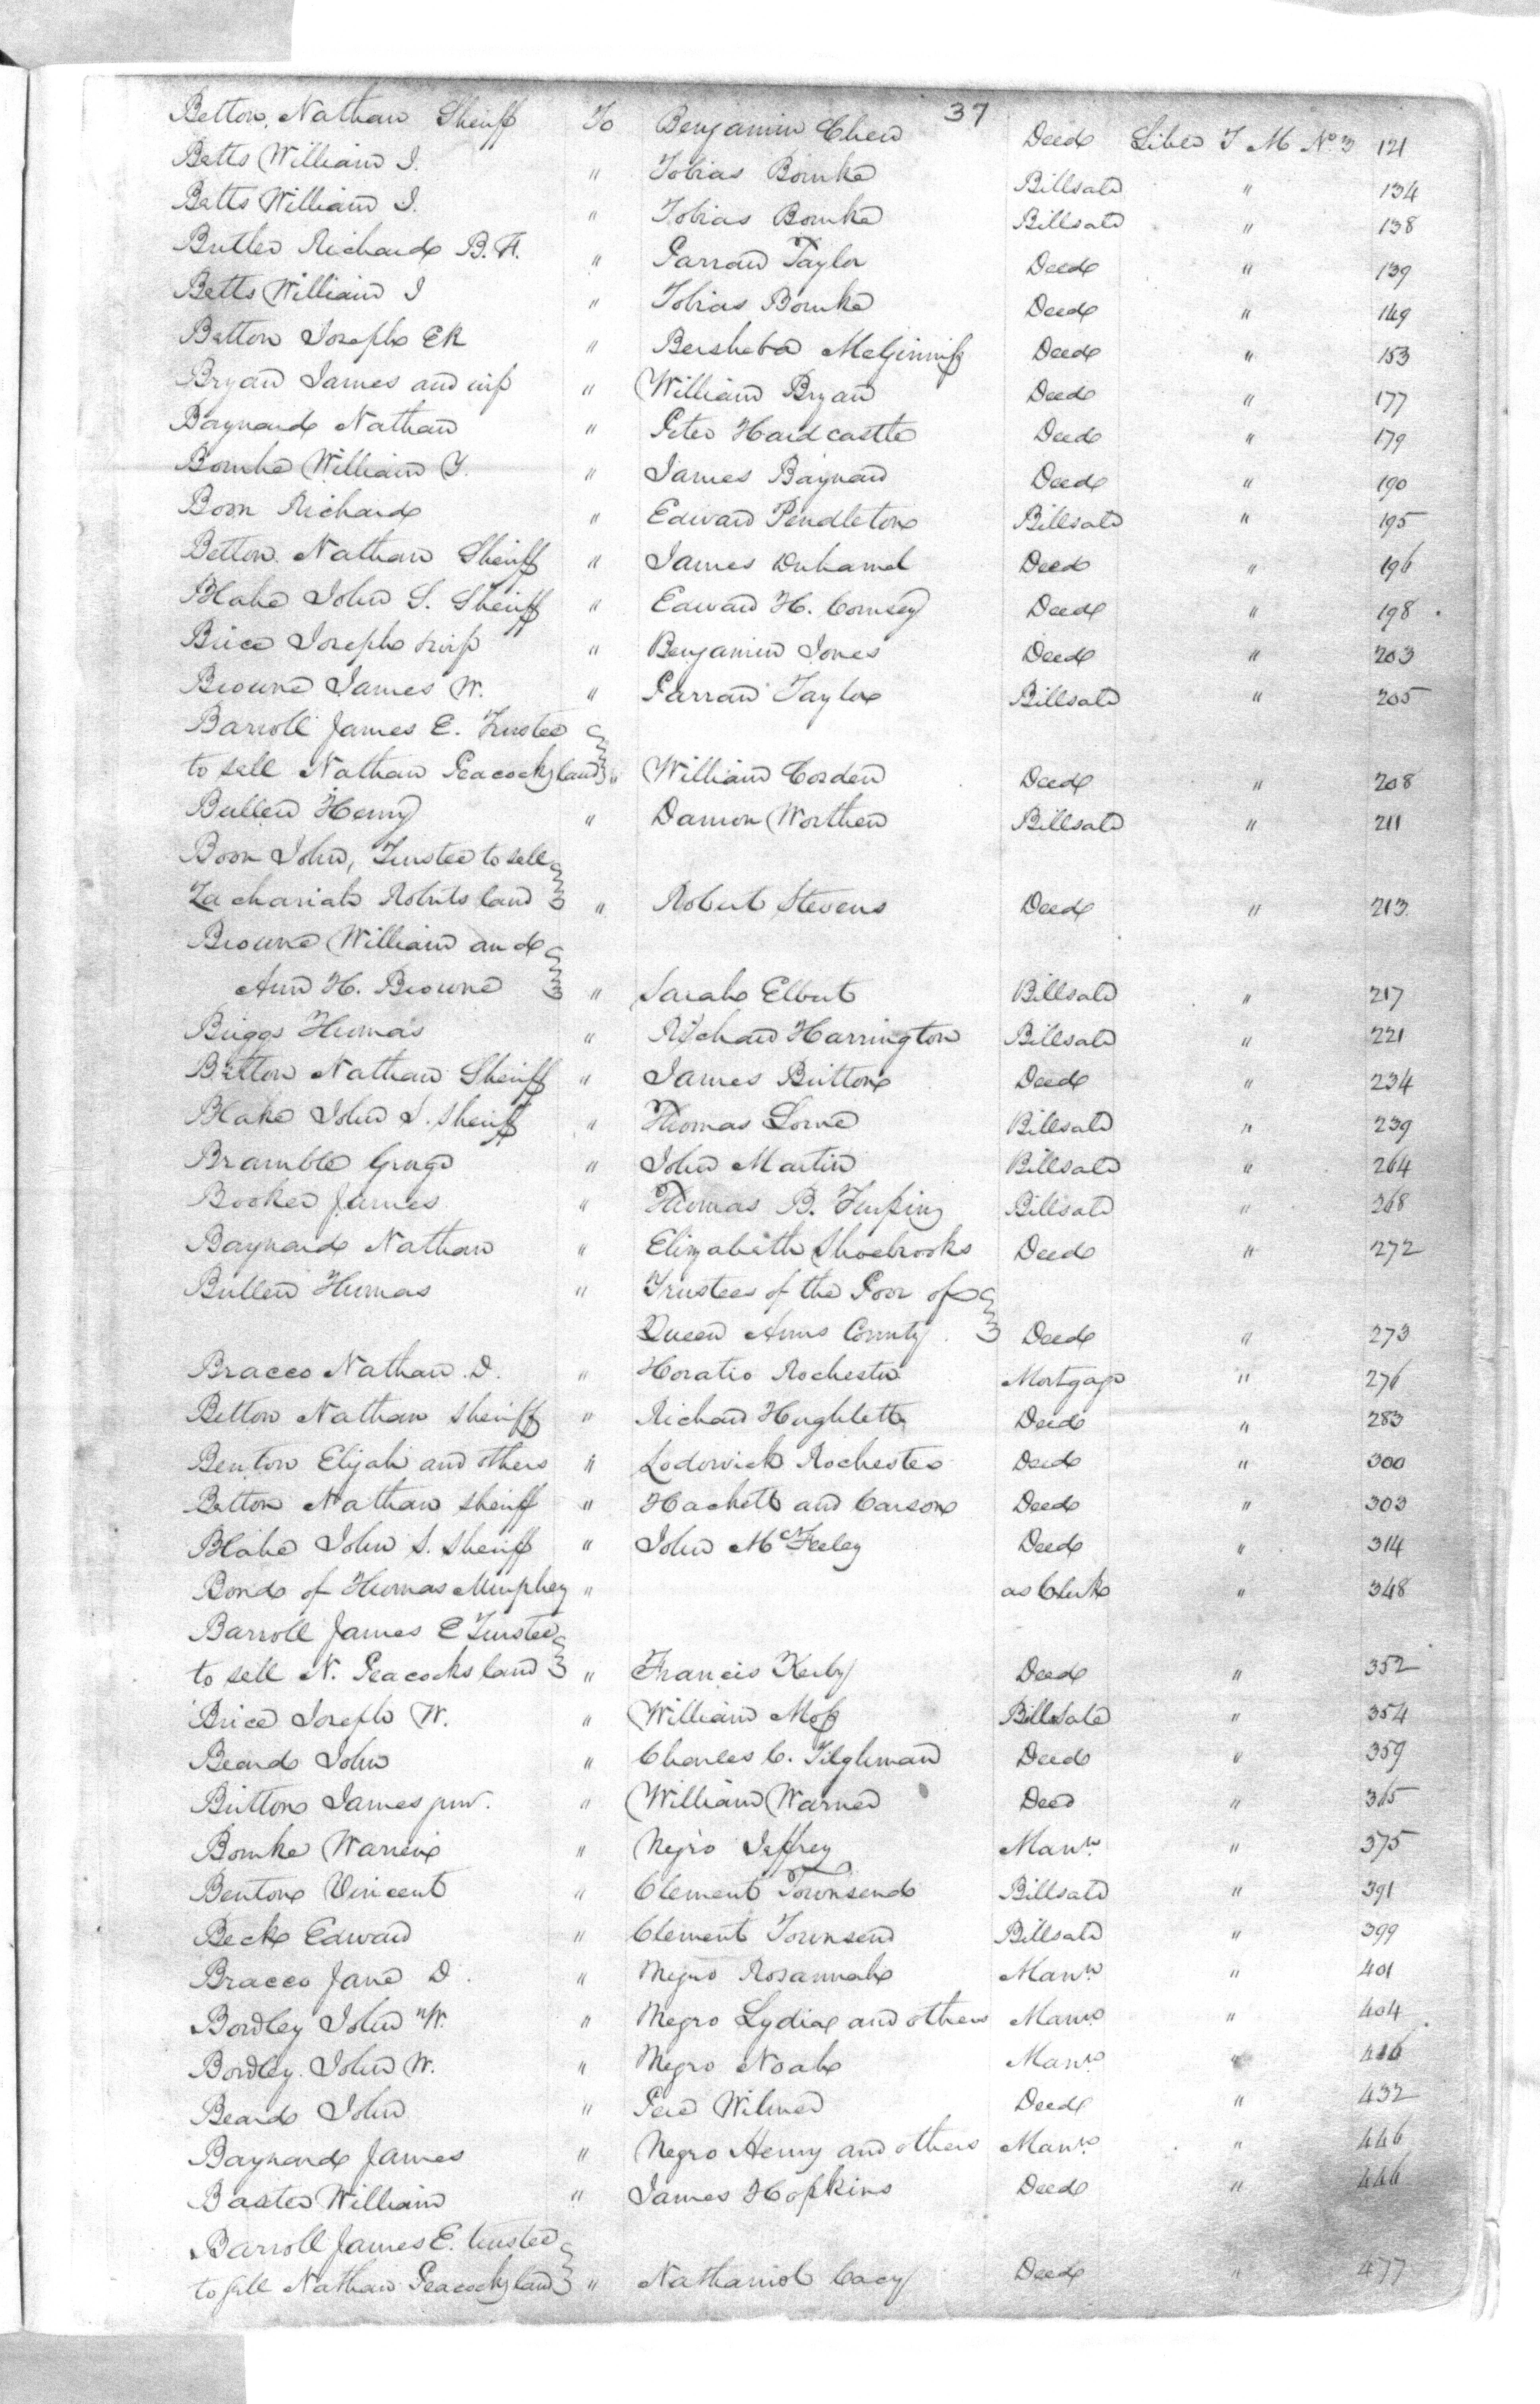 37
Betton, Nathan Sheriff To Benjamin Chew Deed Liber T M No 3 121
Betts William I. " Tobias Bourke Billsale " 134
Betts William I. " Tobias Bourke Billsale " 138
Butler Richard B. H. " Parran Taylor Deed " 139
Betts William I " Tobias Bourke Deed " 149
Betton Joseph Ex " Bersheba McGinniss Deed " 153
Bryan James and wife " William Bryan Deed " 177
Baynard Nathan " Peter Hardcastle Deed " 179
Bourke William Y. " James Baynard Deed " 190
Boon Richard " Edward Pendleton Billsale " 195
Betton Nathan Sheriff " James Duhamel Deed " 196
Blake John S. Sheriff " Edward H. Comsey Deed " 198
Brice Joseph & wife " Benjamin Jones Deed " 203
Browne James W. " Parran Taylor Billsale " 205
Barroll James E. Trustee
to sell Nathan Peacocks land " William Cosden Deed " 208
Bullen Henry " Damon Worthen Billsale " 211
Boon John, Trustee to sell
Zachariah Roberts land " Robert Stevens Deed " 213
Browne William and
Ann H. Browne " Sarah Elbert Billsale " 217
Briggs Thomas " Richard Harrington Billsale " 221
Betton Nathan Sheriff " James Britton Deed " 234
Blake John S. Sheriff " Thomas Lorne Billsale " 239
Bramble George " John Martin Billsale " 264
Booker James " Thomas B. Billsale " 268
Baynard Nathan " Elizabeth Shoebrooks Deed " 272
Bullen Thomas " Trustees of the Poor of
Queen Anns County Deed " 273
Bracco Nathan D. " Horatio Rochester Mortgage " 276
Betton Nathan Sheriff " Richard Hughlett Deed " 283
Benton Elijah and others " Lodowick Rochester Deed " 300
Betton Nathan Sheriff " Hackett and Carson Deed " 303
Blake John S. Sheriff " John McFeeley Deed " 314
Bond of Thomas Murphey " as Clerk " 348
Barroll James E Trustee
to sell N. Peacocks land " Francis Kerby Deed " 352
Brice Joseph W. " William Moss Billsale " 354
Beard John " Charles C. Tilghman Deed " 359
Britton James junr. " William Warner Deed " 365
Bourke Warren " Negro Jeffrey Mann. " 375
Benton Vincent " Clement Townsend Billsale " 391
Beck Edward " Clement Townsend Billsale " 399
Bracco Jane D. " Negro Rosannah Mann " 401
Bordley John W. " Negro Lydia and others Mann. " 404
Bordley John W. " Negro Noah Mann. "
Beard John " Pere Wilmer Deed " 432
Baynard James " Negro Henry and others Mann. " 446
Baxter William " James Hopkins Deed " 446
Barroll James E. trustee
to sell Nathan Peacocks land " Nathaniel Cacy Deed " 477